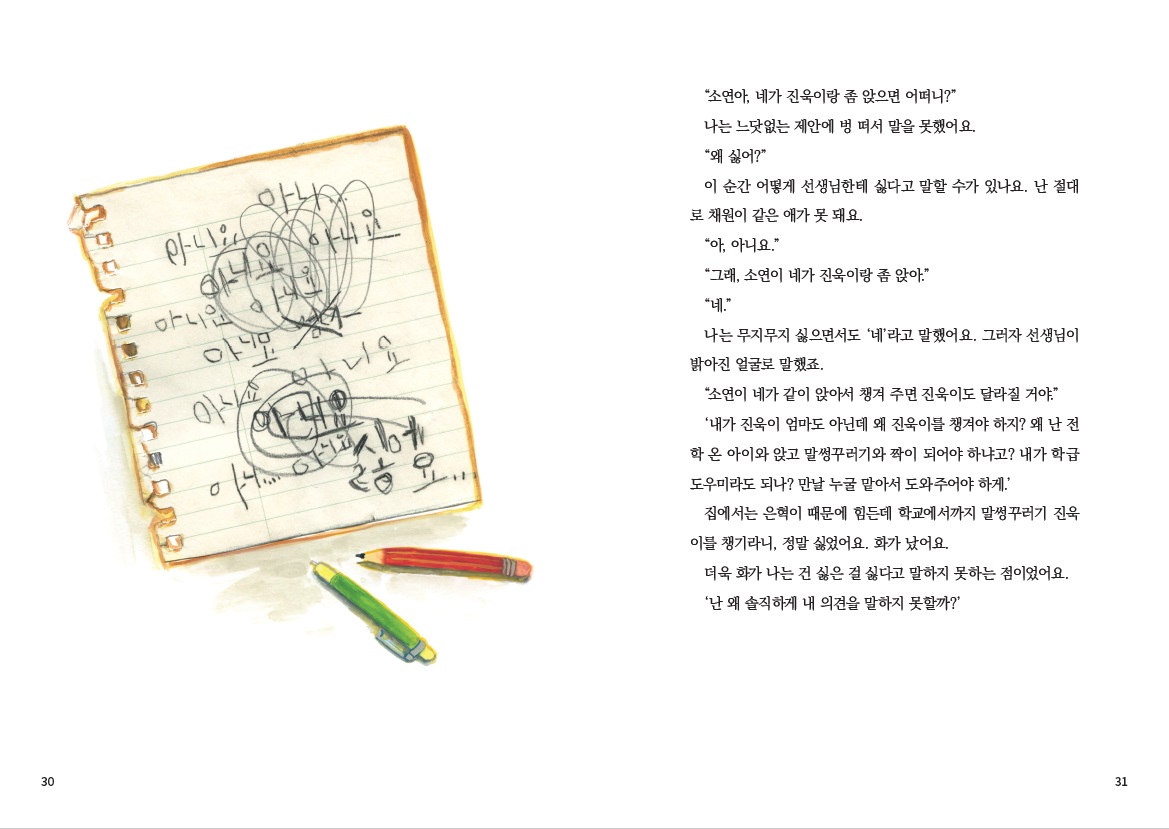 아니...
아니요
아니요
아니요
아니요
아니요
아니요
아니요
아니요
30
“소연아, 네가 진욱이랑 좀 앉으면 어떠니?”
나는 느닷없는 제안에 벙 떠서 말을 못했어요.
“왜 싫어?”
이 순간 어떻게 선생님한테 싫다고 말할 수가 있나요. 난 절대
로 채원이 같은 애가 못 돼요.
“아, 아니요.”
“그래, 소연이 네가 진욱이랑 좀 앉아.”
“네.”
나는 무지무지 싫으면서도 ‘네’라고 말했어요. 그러자 선생님이
밝아진 얼굴로 말했죠.
“소연이 네가 같이 앉아서 챙겨 주면 진욱이도 달라질 거야.”
‘내가 진욱이 엄마도 아닌데 왜 진욱이를 챙겨야 하지? 왜 난 전
학 온 아이와 앉고 말썽꾸러기와 짝이 되어야 하냐고? 내가 학급
도우미라도 되나? 만날 누굴 맡아서 도와주어야 하게.’
집에서는 은혁이 때문에 힘든데 학교에서까지 말썽꾸러기 진욱
이를 챙기라니, 정말 싫었어요. 화가 났어요.
더욱 화가 나는 건 싫은 걸 싫다고 말하지 못하는 점이었어요.
‘난 왜 솔직하게 내 의견을 말하지 못할까?’
31